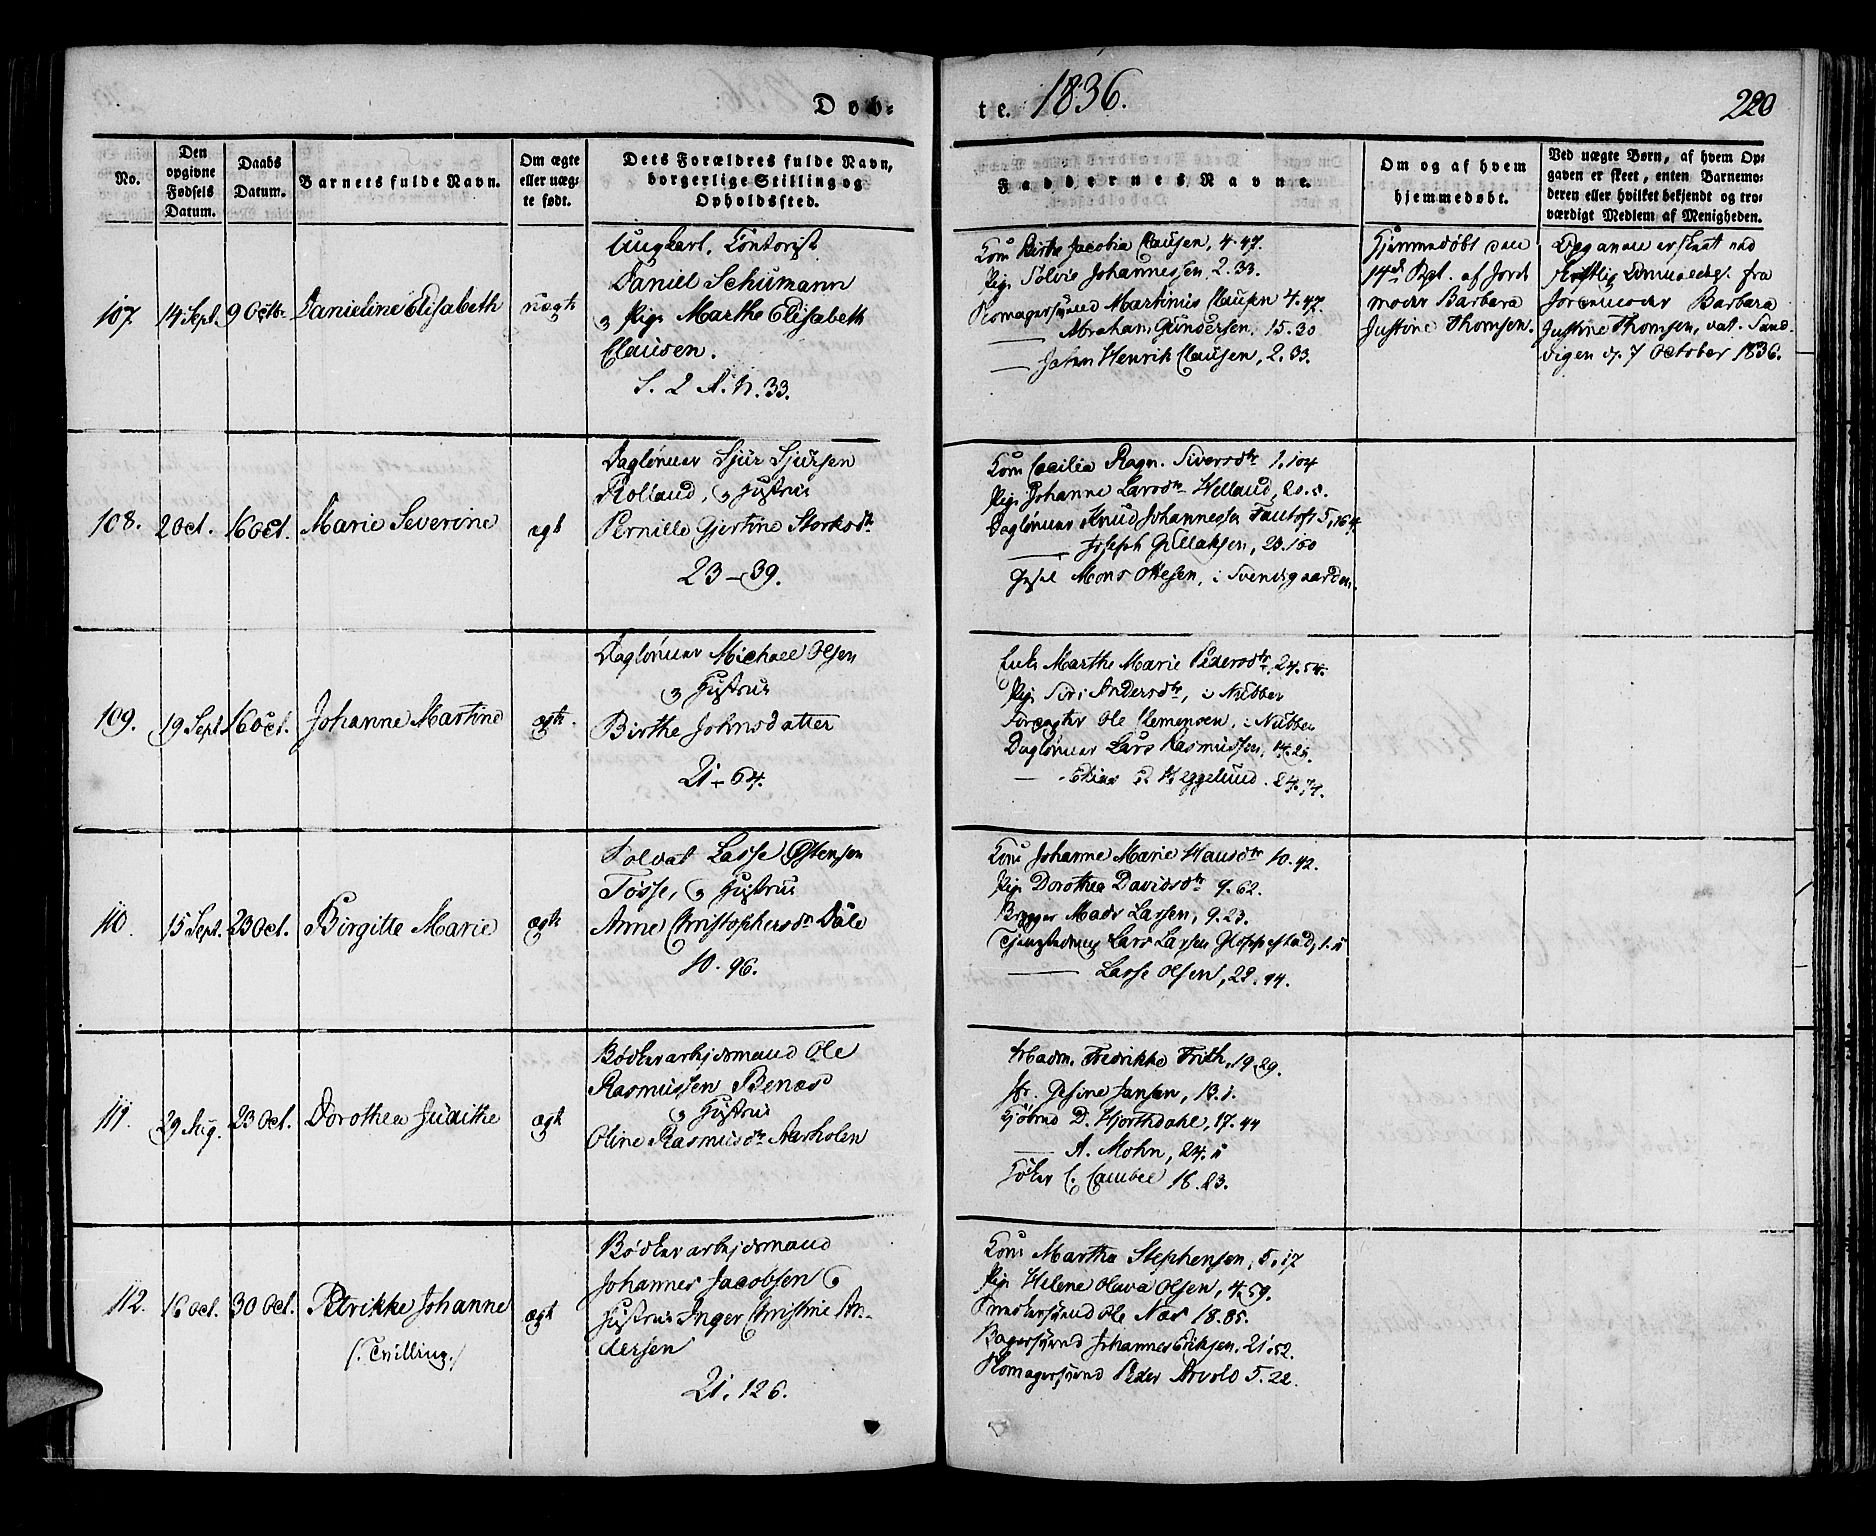 Døb=
te. 1836.
220
No.
Den opgivne Fødsels Datum.
Daabs Datum.
Barnets fulde Navn.
Om ægte eller uæg-te født.
Dets Forældres fulde Navn, borgerlige Stilling og Opholdssted.
Faddernes Navne.
Om og af hvem hjemmedøbt.
Ved uægte Børn, af hvem Op-gaven er skeet, enten Barnemo-deren eller hvilket bekjendt og tro-værdigt Medlem af Menigheden.
107. 14 Sept. 9 Octbr Danieline Elisabeth uægte
Ungkarl, Contorist
Daniel Schumann
og Pig. Marthe Elisabeth
Clausen.
S. 2 A. N. 33.
Kone Birthe Jacobia Clausen, 4.47.
Pig. Sølvie Johannessen, 2.33.
Skomagersvend Martinus Clausen 4.47.
— Abraham Gundersen, 15.30
— Johan Henrik Clausen, 2.33.
Hjemmedøbt den
14de Spt. af Jord
moder Barbara
Justine Thomsen.
Opgaven er skeet ved
fra
Jordemoder Barbara
Justine Thomsen, dat. Sand-
vigen d. 7 October 1836.
108. 2 Oct. 16 Oct. Marie Severine ægte
Daglønner Sjur Sjursen
Rolland, og Hustrue
Pernille Gjertine Storksdtr
23 – 39.
Kone Cecilia Ragn. Siversdtr 1.104
Pig. Johanne Larsdtr Helland, 20.5.
Daglønner Knud Johannessen Fantoft 5,164
— Joseph 20.100
Mons Ottesen, i Svendsgaarden.
109. 19 Sept 16 Oct. Johanne Martine ægte.
Daglønner Michael Olsen
og Hustrue
Birthe Johnsdatter
21 – 64.
Enke Marthe Marie Pedersdtr, 24.54.
Pig. Siri Andersdtr, i Nubben
Ole Clemensen, i Nubben
Daglønner Lars Rasmussen, 14.25.
— Heggelund. 24.74.
110. 15 Sept. 23 Oct. Birgitte Marie ægte
Soldat Lasse Østensen
Tøsse, og Hustrue
Anne Christophersdtr Dale
10. 96.
Kone Johanne Marie Hansdtr 10.92.
Pig. Dorothea Davidsdtr 9.62.
Brygger Mads Larsen, 9.23.
Lars Larsen Gloppestad, 1.11
— Lasse Olsen, 22.94.
111. 29 Aug. 23 Oct. Dorothea Judithe ægte
Bødkerarbejdsmand Ole
Rasmussen Benæs
og Hustrue
Oline Rasmusdtr Aarholen
Madm. Fredrikke Frith, 19.29.
Jfr. Gesine Jansen, 13.1.
Kjøbmd D. Hjorthdahl, 17.44
— A. Mohn, 24.11
C. 16.23.
112. 16 Oct. 30 Oct. Petrikke Johanne ægte
(: Tvilling. :)
Bødkerarbejdsmand
Johannes Jacobsen og
Hustrue Inger Christine An-
dersen
21. 126.
Kone Martha Stephensen, 5.17
Pig. Helene Olava Olsen, 4.59.
Ole Næs 18.85.
Bagersvend Johannes Eriksen. 21.52.
Skomagersvend Peder Arvold 5.22.